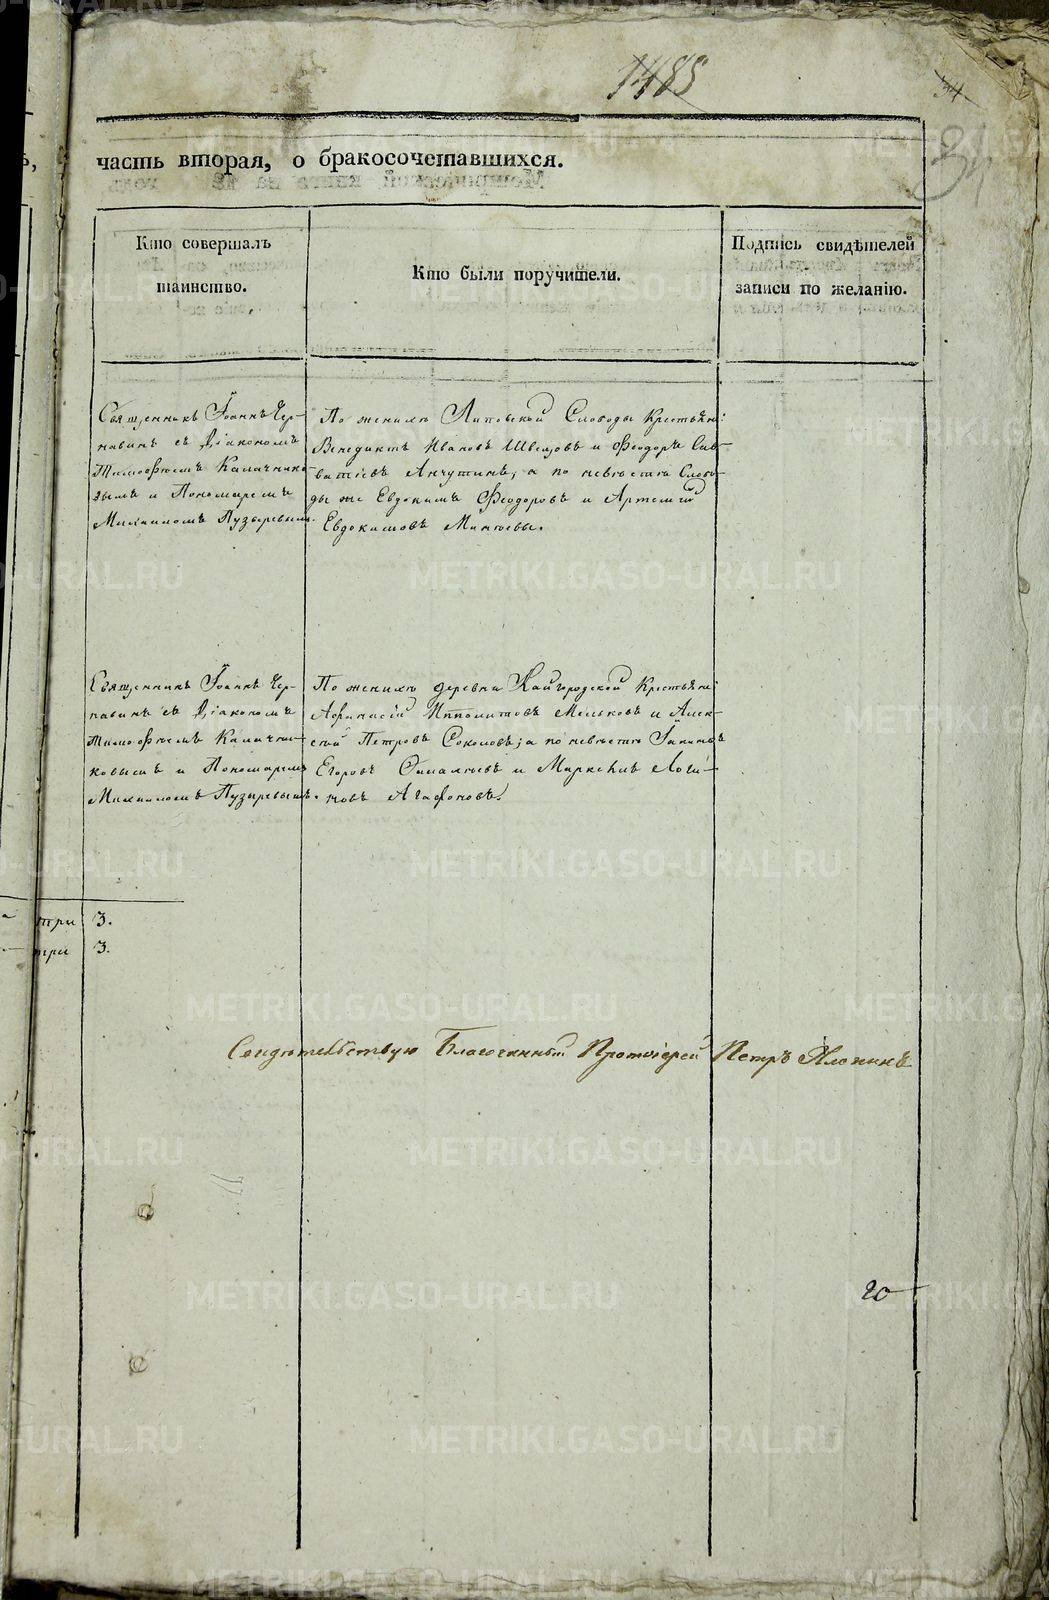 1485
34
34
часть вторая, о бракосочетавшихся.
Кто совершалъ
таинство.
Кто были поручители.
Подпись свидѣтелей
записи по желанію.
Священникъ Іоаннъ Чер-
навинъ съ Діакономъ
Тимофѣемъ Калачнико-
вымъ и Пономаремъ
Михаиломъ Пузыревымъ.
По женихѣ Липовской Слободы Крестьяне:
Венедиктъ Ивановъ Швецовъ и Феодоръ Сав-
ватіевъ Анчутинъ, а по невѣстѣ Слобо-
ды же Евдокимъ Феодоровъ и Артемій
Евдокимовъ Минѣевы.
Священникъ Іоаннъ Чер-
навинъ съ Діакономъ
Тимофѣемъ Калачни-
ковымъ и Пономаремъ
Михаиломъ Пузыревымъ.
По женихѣ деревни Кайгородской Крестьяне
Афанасій Ипполитовъ Мельковъ и Алек-
сѣй Петровъ Соколовъ; а по невѣстѣ
Егоровъ и Логи-
новъ Агафоновъ.
три 3.
три 3.
Свидѣтельствую Благочинный Протоіерей Петръ
20
METRIKI.GASO-URAL.RU